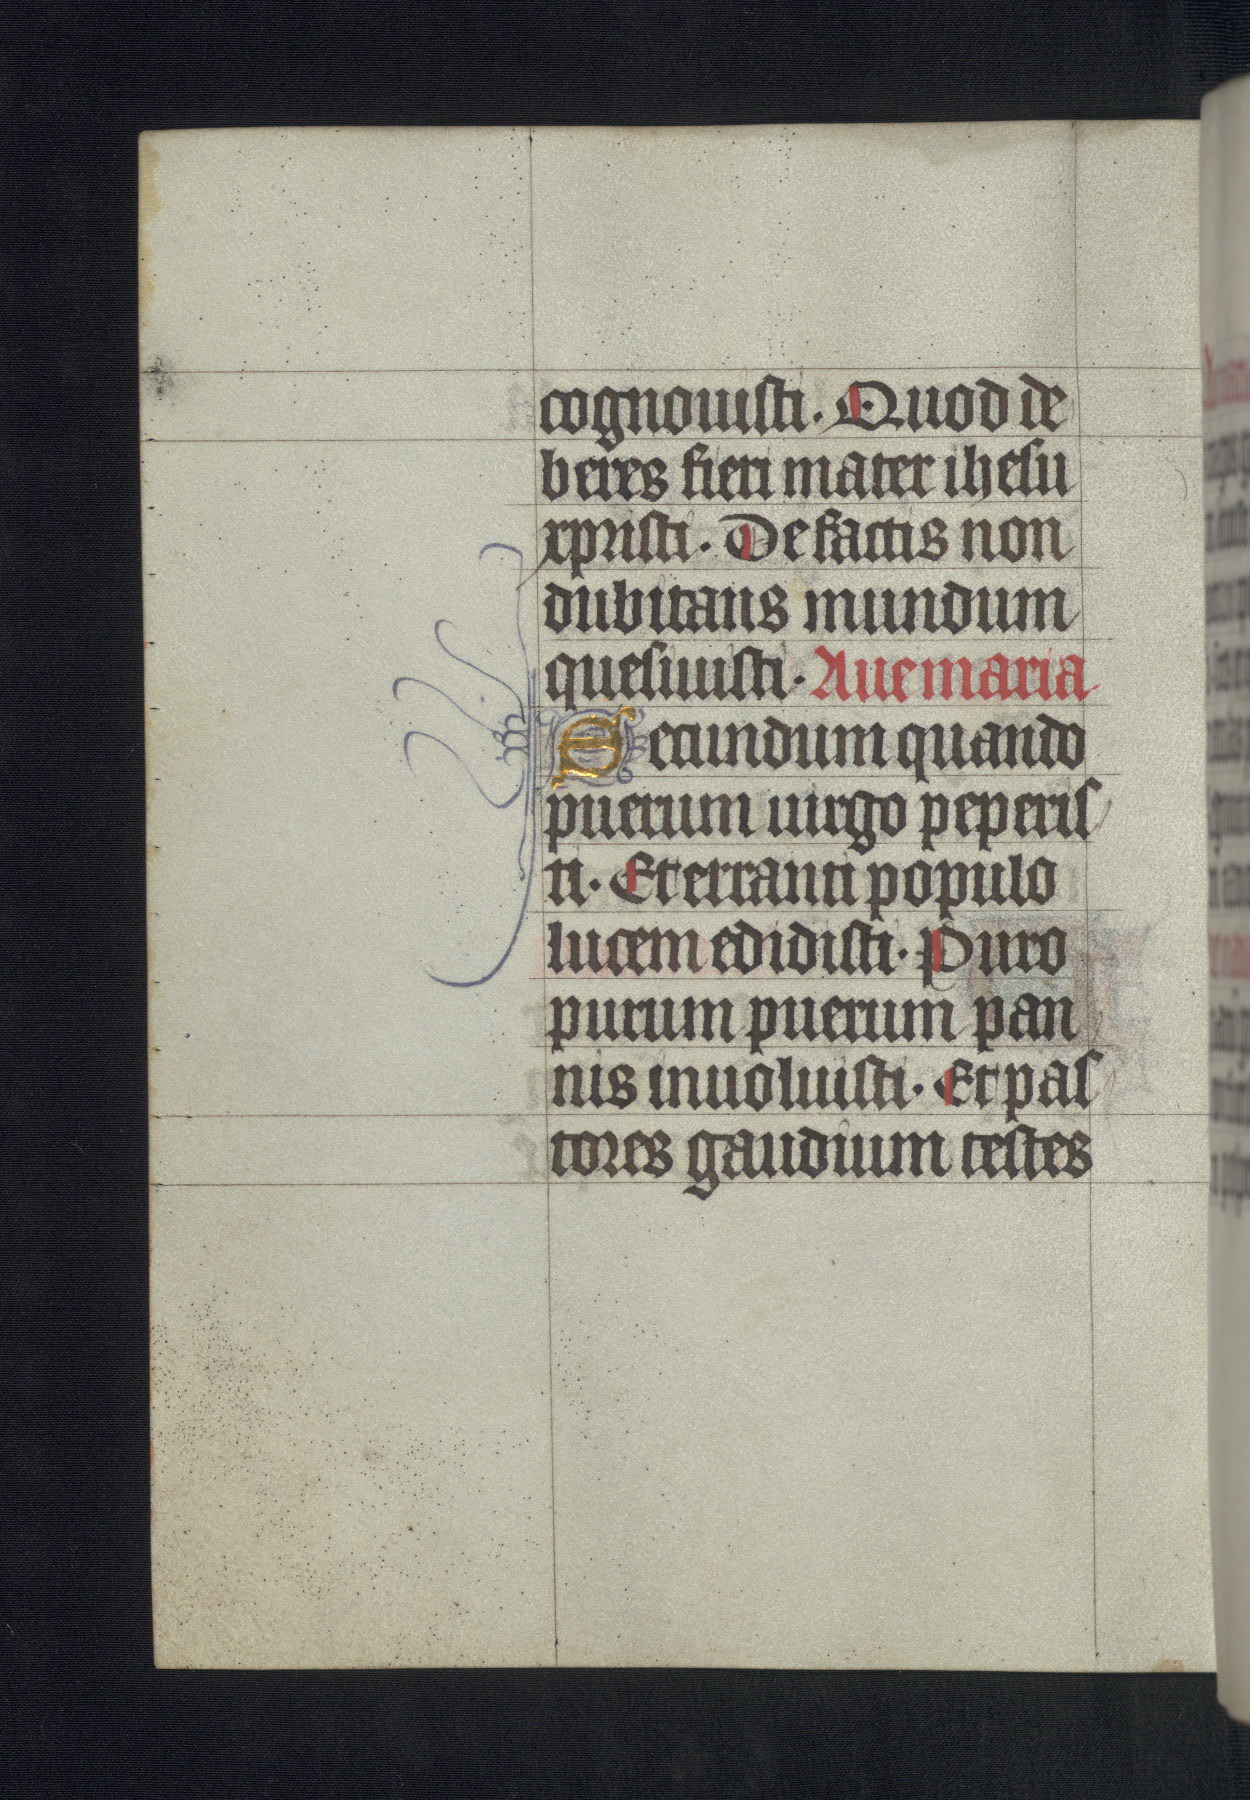 cognouisti. Quod de
beres fieri mater ihesu
xpristi. De factis non
dubitans mundum
quesiuisti. Aue maria
Secundum quando
puerum uirgo peperis
ti. Et erranti populo
lucem edidisti. Puro
purum puerum pan
nis inuoluisti. Et pas
tores gaudium testes